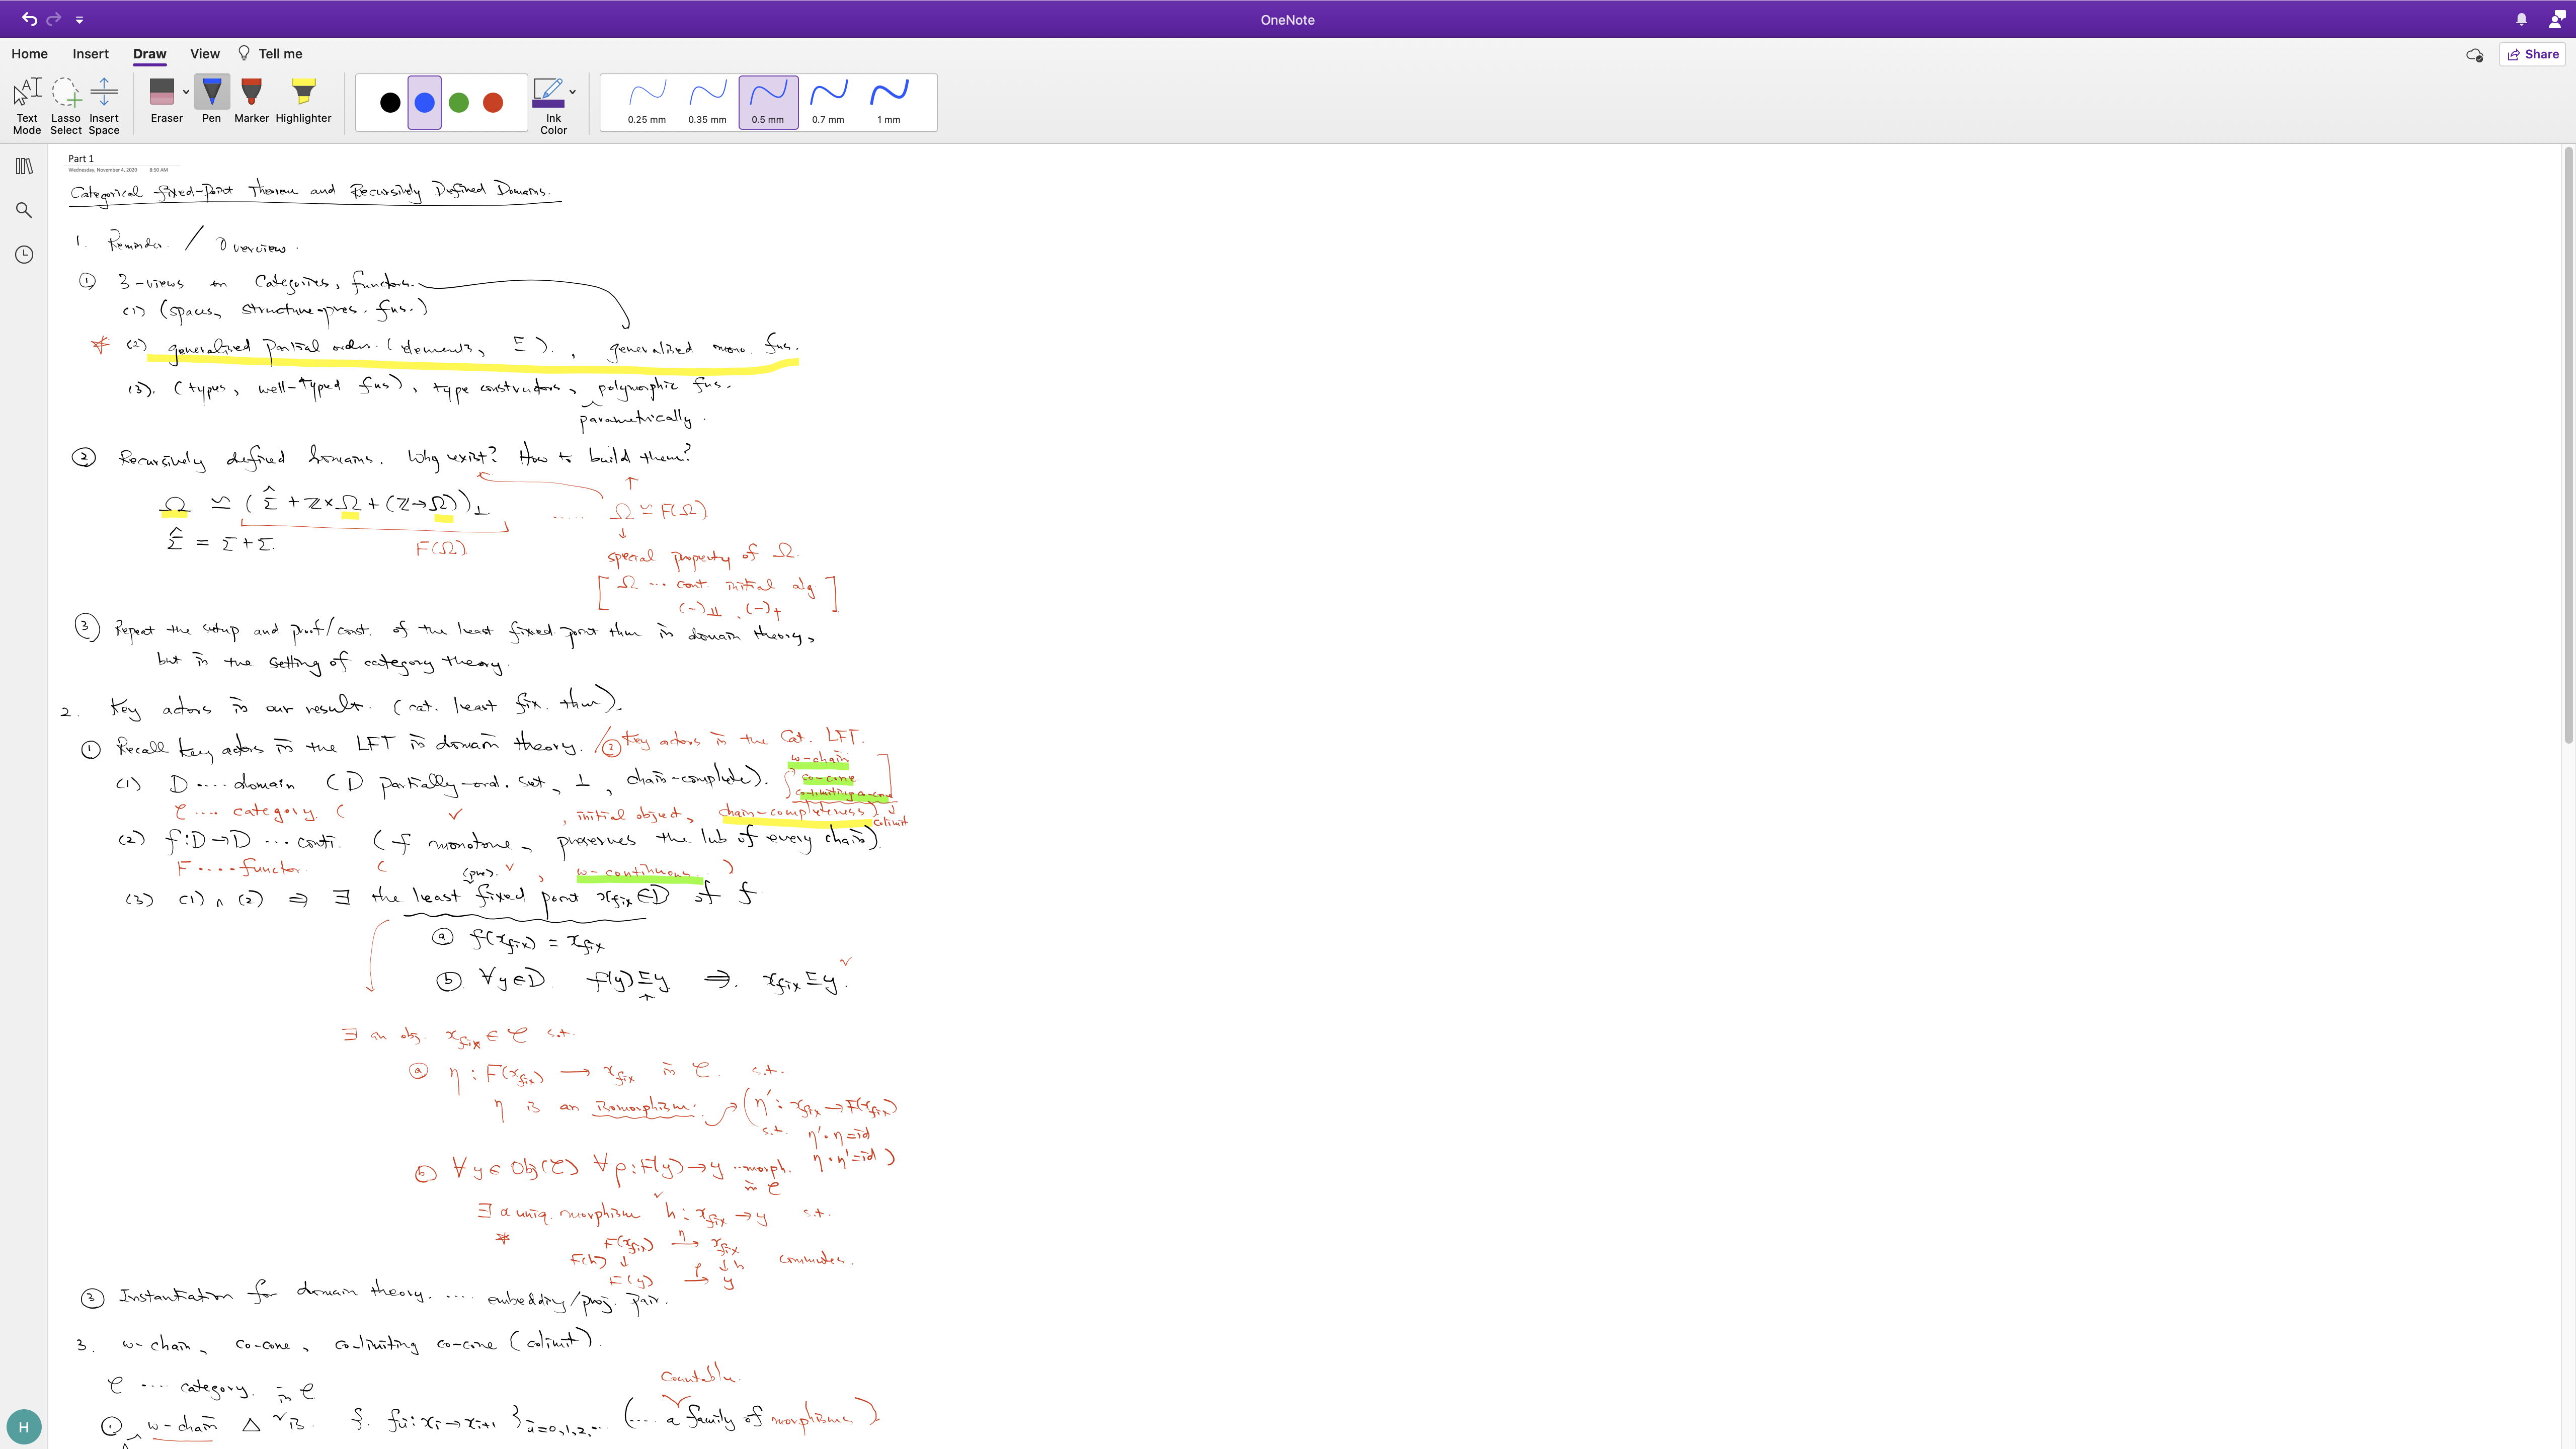 OneNote
Home Insert Draw View Tell me
Share
Text Mode
Lasso Select
Insert Space
Eraser
Pen
Marker
Highlighter
Ink Color
0.25 mm
0.35 mm
0.5 mm
0.7 mm
1 mm
Part 1
Wednesday, November 4, 2020 8:50 AM
Categorical Fixed-Point Theorem and Recursively Defined Domains.
1. Reminder / Overview.
① 3-views on Categories, functors.
(1) (spaces, structure-pres. fns.)
* (2) generalised partial order (elements, ⊑)., generalised mono. fns.
(3). (types, well-typed fns), type constructors, polymorphic fns.
parametrically.
② Recursively defined domains. Why exist? How to build them?
Ω ≃ (Σ̂ + ℤ×Ω + (ℤ→Ω))⊥ ..... Ω ≃ F(Ω)
Σ̂ = Σ + Σ. F(Ω)
special property of Ω.
[Ω ... cont. initial alg]
(-)⊥⊥, (-)†
③ Repeat the setup and proof/const. of the least fixed point thm in domain theory,
but in the setting of category theory.
2. Key actors in our result. (cat. least fix. thm).
① Recall key actors in the LFT in domain theory. /② Key actors in the Cat. LFT.
ω-chain
co-cone
co-limiting co-cone
(1) D .... domain (D partially-ord. set, ⊥, chain-complete).
C .... category ( ✓, initial object, chain-completeness)
colimit
(2) f:D→D ... conti. (f monotone, preserves the lub of every chain)
F .... functor ( ✓, ω-continuous )
(pre).
(3) (1) ∧ (2) ⇒ ∃ the least fixed point x_fix ∈ D of f
ⓐ f(x_fix) = x_fix
ⓑ ∀y∈D f(y) ⊑ y ⇒. x_fix ⊑ y.
∃ an obj. x_fix ∈ C s.t.
ⓐ η : F(x_fix) → x_fix in C. s.t.
η is an isomorphism. (η' : x_fix → F(x_fix)
s.t. η'∘η = id
η∘η' = id)
ⓑ ∀y∈Obj(C) ∀ρ:F(y)→y ..morph.
in C
∃ a uniq. morphism h : x_fix → y s.t.
* F(x_fix) η→ x_fix
F(h) ↓ ↓ h commutes.
F(y) ρ→ y
③ Instantiation for domain theory. .... embedding/proj. pair.
3. ω-chain, co-cone, co-limiting co-cone (colimit).
C ... category. in C
countable
① ω-chain Δ is. {fi : xi → xi+1}i=0,1,2,... (... a family of morphisms)
H